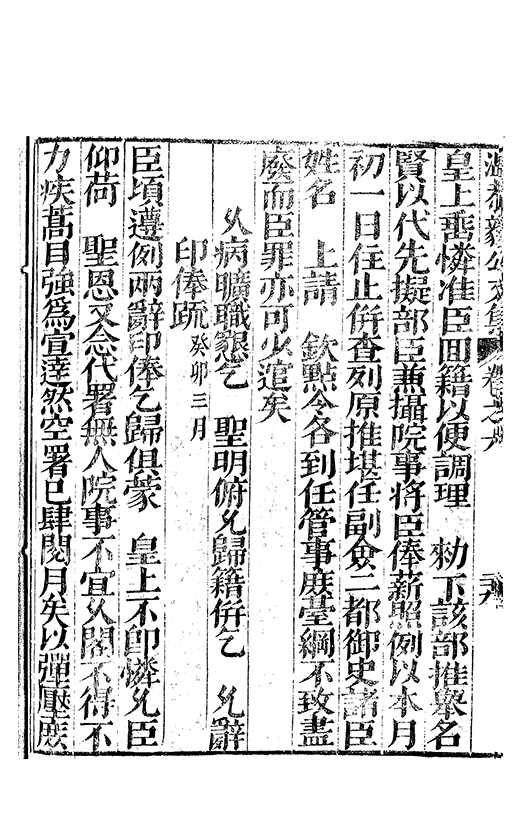 溫恭毅公文集 卷之六
皇上垂憐准臣回籍以便調理 勑下該部推舉名
賢以代先擬部臣兼攝院事將臣俸薪照例以本月
初一日住止併查列原推堪任副僉二都御史諸臣
姓名 上請 欽點令各到任管事庶臺綱不致盡
廢而臣罪亦可少逭矣
以病曠職懇乞 聖明俯允歸籍併乞 允辭
印俸疏癸卯三月
臣頃遵例兩辭印俸乞歸俱蒙 皇上不卽憐允臣
仰荷 聖恩又念代署無人院事不宜久閣不得不
力疾蒿目強爲宣達然空署已肆閱月矣以彈壓庶